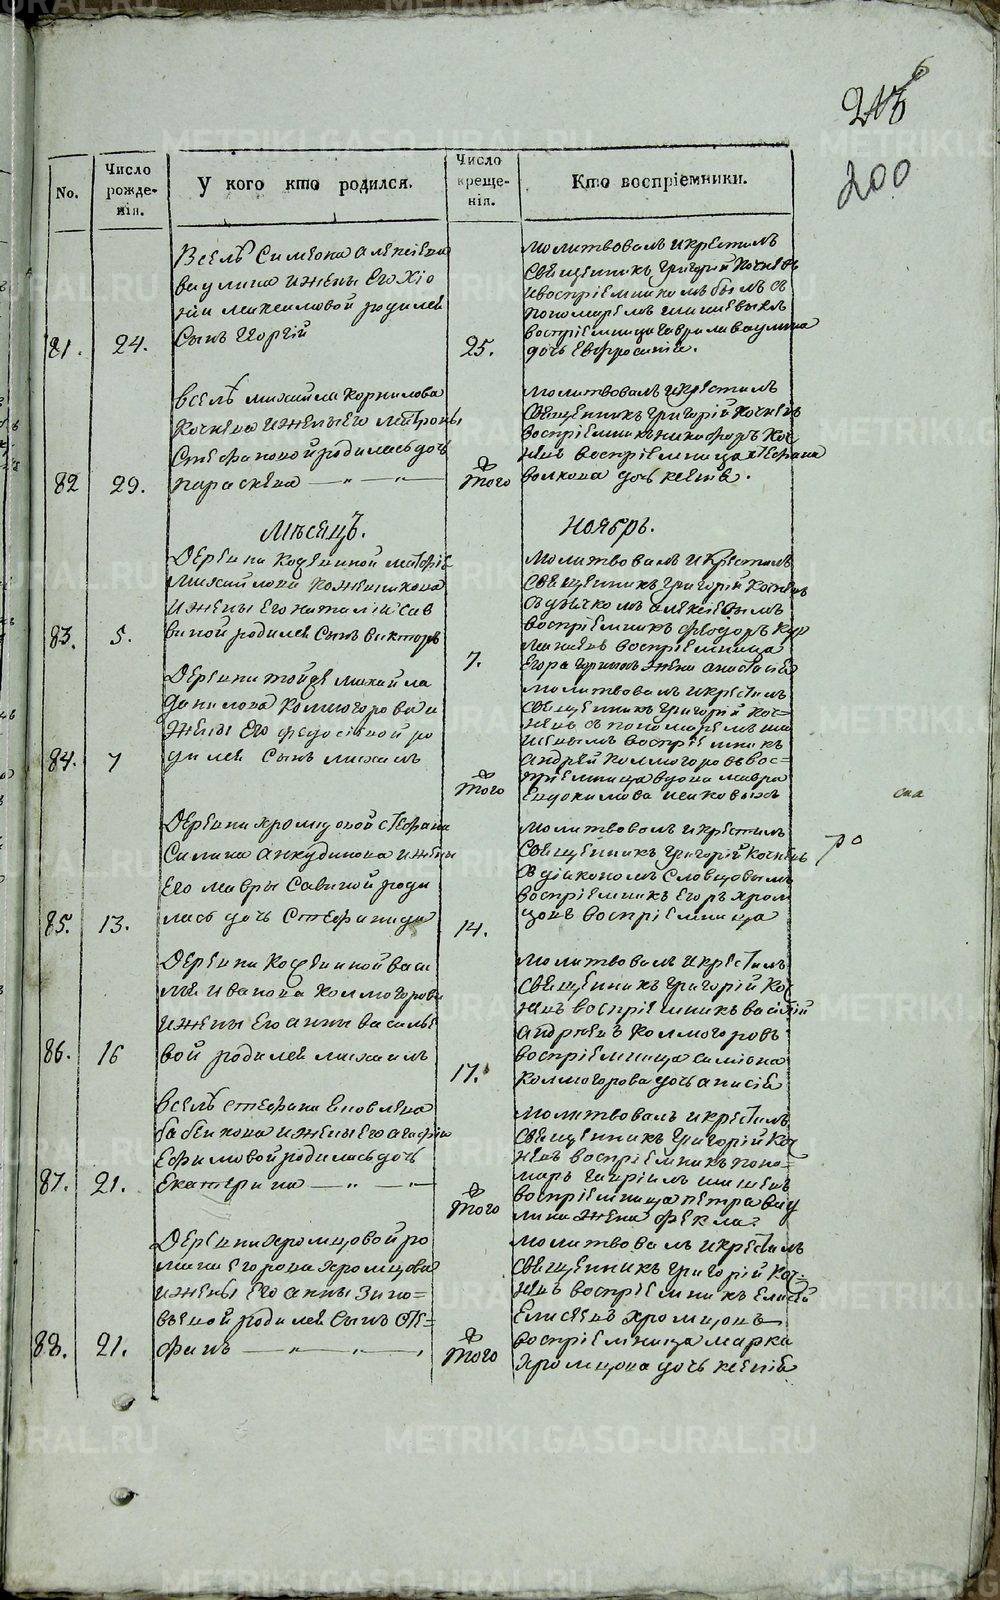 216
200
No.
Число рожденія.
У кого кто родился.
Число крещенія.
Кто воспріемники.
81.
24.
Вселѣ Симеона Алексѣева
Ваулина ижены Его Хіо
ніи Максимовой родился
Сынъ Георгій
25.
молитвовалъ икрестилъ
Священникъ Григорій Кочневъ
ивоспріемникомъ былъ съ
пономаремъ
воспріемница Гаврила Ваулина
дочь Евфросинія.
82
29.
Вселѣ михайла Корнилова
Кочнева ижены его Матроны
Стефановой родилась дочь
параскева — „ — „ —
Того
молитвовалъ икрестилъ
Священникъ Григорій Кочневъ
воспріемникъ никифоръ Коч
невъ воспріемница Стефана
волкова дочь ксенія.
Мѣсяцъ.
Ноябрь.
83.
5.
Деревни Кодевиной
михайлова Кожевникова
ижены Его наталіи Сав
виной родился Сынъ викторъ
7.
молитвовалъ икрестилъ
Священникъ Григорій Кочневъ
съ дьячкомъ алексѣевымъ
воспріемникъ Феодоръ
воспріемница
Егора жена анастасія
84.
7
Деревни тойже михайла
данилова Колмогорова и
жены Его федосѣевой ро
дился Сынъ михаилъ
Того
молитвовалъ икрестилъ
Священникъ Григорій Коч=
невъ съ пономаремъ ши
шевымъ воспріемникъ
андрей Колмогоровъ вос=
пріемница вдова мавра
Евдокимова
85.
13.
Деревни хромцовой Стефана
Силина Анкудинова ижены
Его мавры Савиной роди
лась дочь Стефанида
14.
молитвовалъ икрестилъ
Священникъ Григорій Кочневъ
съ діакономъ Словцовымъ
воспріемникъ Егоръ хром
цовъ воспріемница
86.
16
Деревни Кодевиной Васи
лья иванова Колмогорова
ижены Его анны василье
вой родился михаилъ
17.
молитвовалъ икрестилъ
Священникъ Григорій Коч
невъ воспріемникъ василій
андреевъ Колмогоровъ
воспріемница симіона
Колмогорова дочь анисія
87.
21.
Вселѣ Стефана Иовлева
бабенкова ижены Его агафіи
Ефимовой родилась дочь
Екатерина — „ — „ —
Того
молитвовалъ икрестилъ
Священникъ Григорій Коч
невъ воспріемникъ поно=
марь гавріилъ шишевъ
воспріемница петра вау
лина жена Фекла.
88.
21.
Деревни хромцовой ро
мана Егорова хромцова
ижены Его анны Зино=
вьевой родился Сынъ Сте=
фанъ — „ — „ —,
Того
молитвовалъ икрестилъ
Священникъ Григорій Коч=
невъ воспріемникъ Елисей
Елисѣевъ хромцовъ
воспріемница марка
хромцова дочь ксенія
METRIKI.GASO-URAL.RU